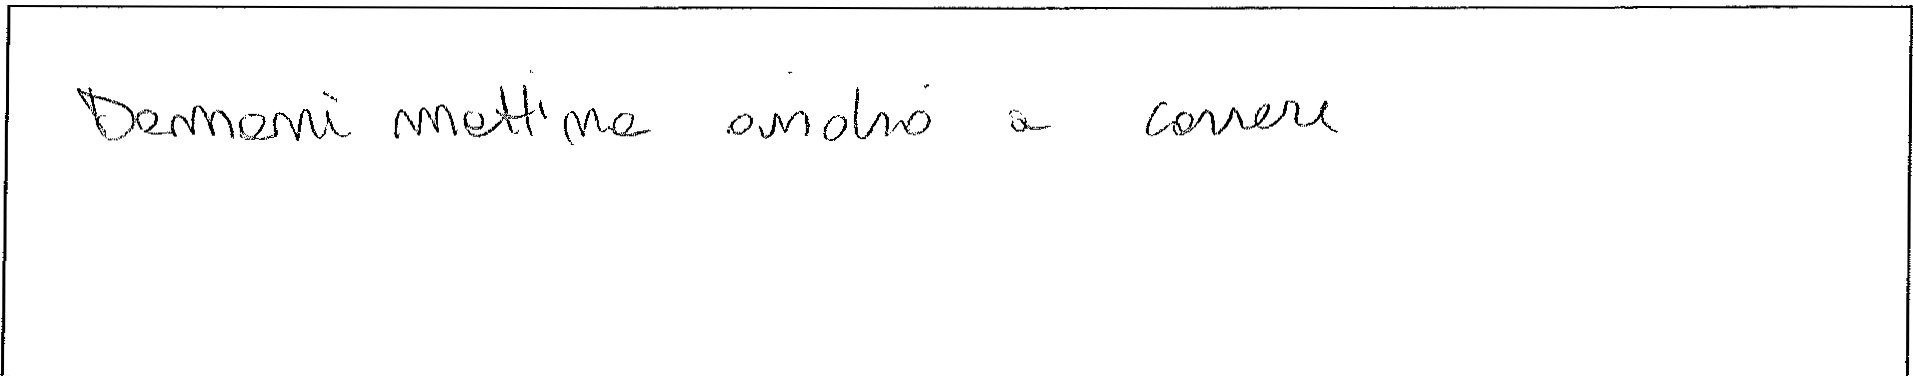 Domani mattina andrò a correre